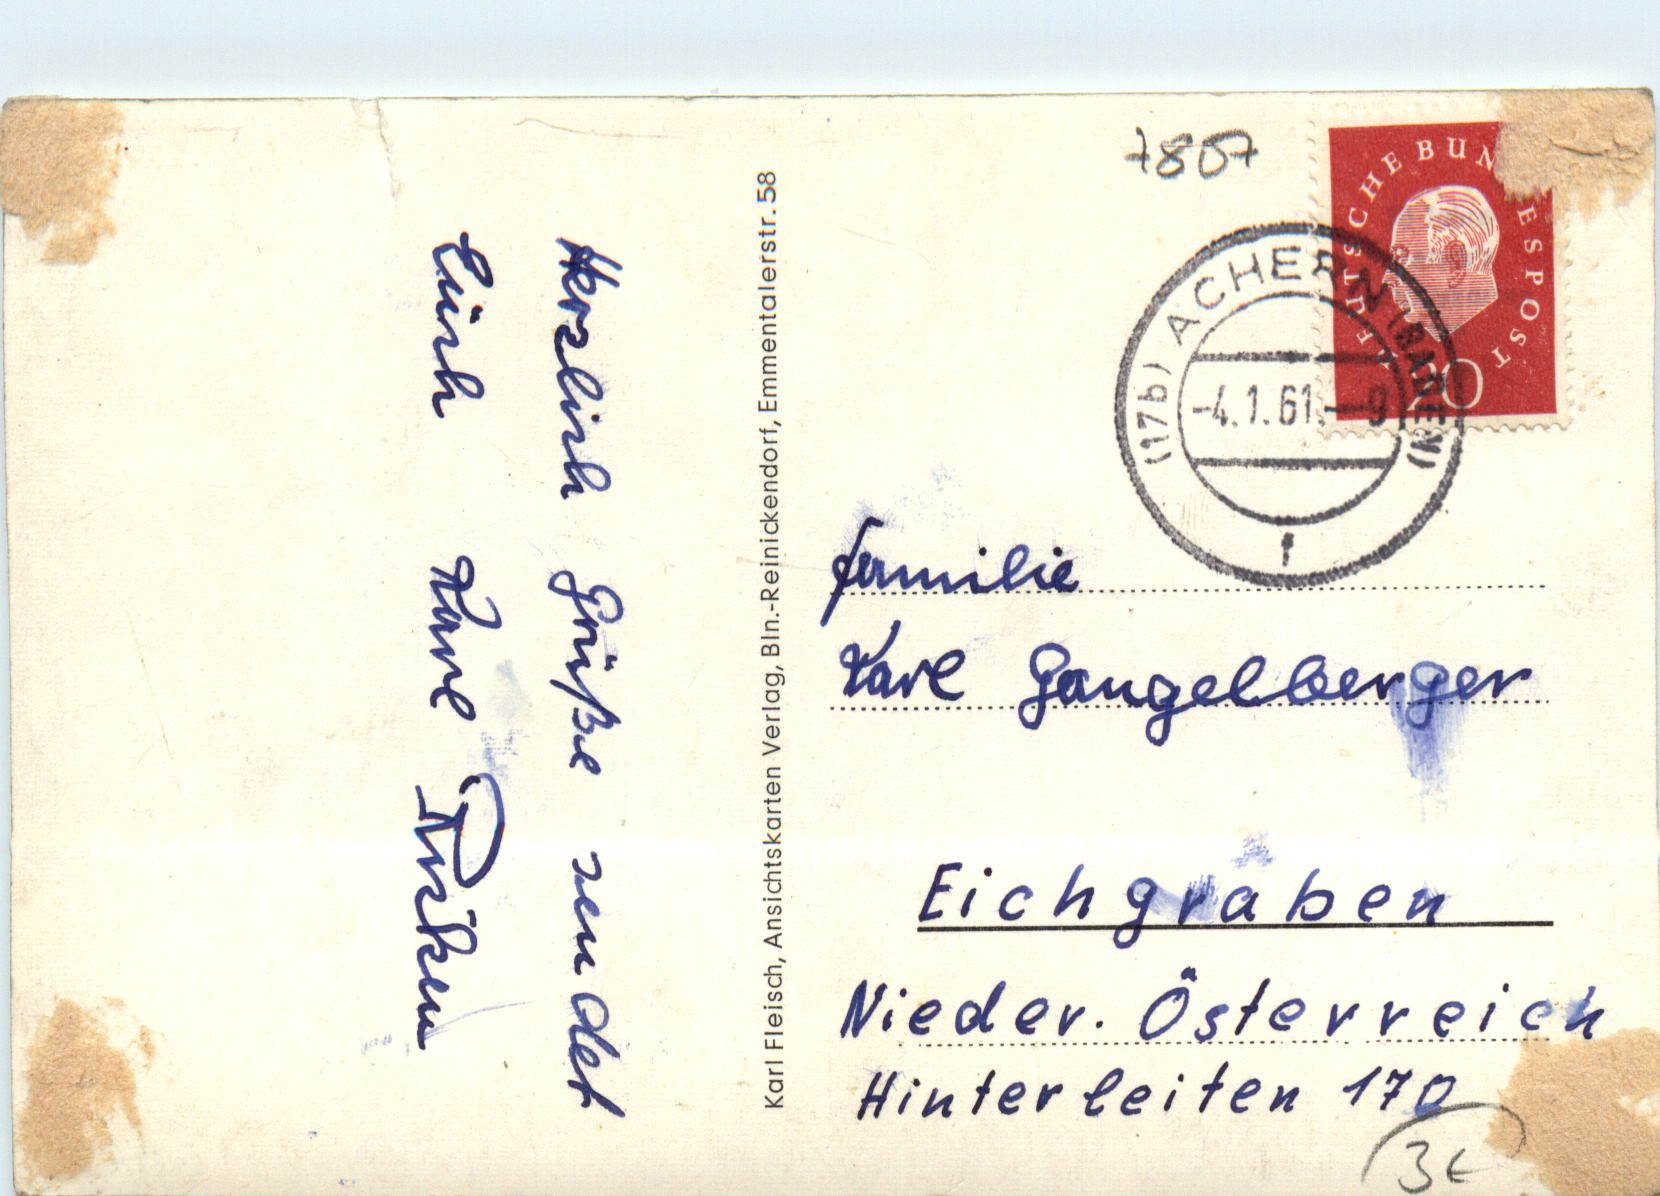 7807
DEUTSCHE BUNDESPOST
(17b) ACHERN (BADEN)
-4.1.61.--9
f
Herzlich Grüße sendet
Euch Karl
Karl Fleisch, Ansichtskarten Verlag, Bln.-Reinickendorf, Emmentalerstr. 58
Familie
Karl Gangelberger
Eichgraben
Nieder. Österreich
Hinterleiten 170
3€